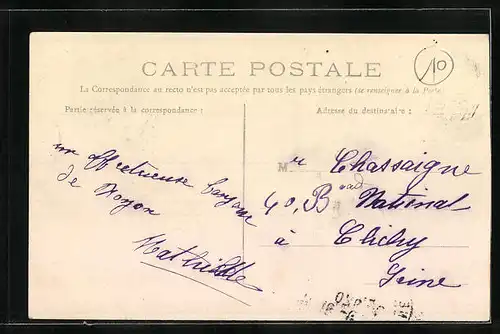 10
CARTE POSTALE
La Correspondance au recto n'est pas acceptée par tous les pays étrangers (se renseigner à la Poste)
Partie réservée à la correspondance :
Adresse du destinataire :
un affectueux bonjour
de Noyon
Mathilde
M lle Chassaigne
40, B ard National
à Clichy
Seine